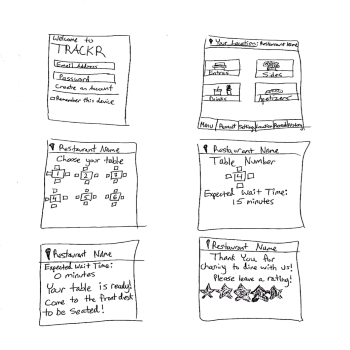 Welcome to
TRACKR
Email Address
Password
Create an Account
Remember this device
Your Location: Restaurant Name
Entrees
Sides
Drinks
Appetizers
Menu
Payment
Settings
Restaurant Name
Choose your table
1 2 3
4 5 6
Restaurant Name
Table Number
4
Expected Wait Time:
15 minutes
Restaurant Name
Expected Wait Time:
0 minutes
Your table is ready!
Come to the front desk
to be seated!
Restaurant Name
Thank You for
choosing to dine with us!
Please leave a rating!